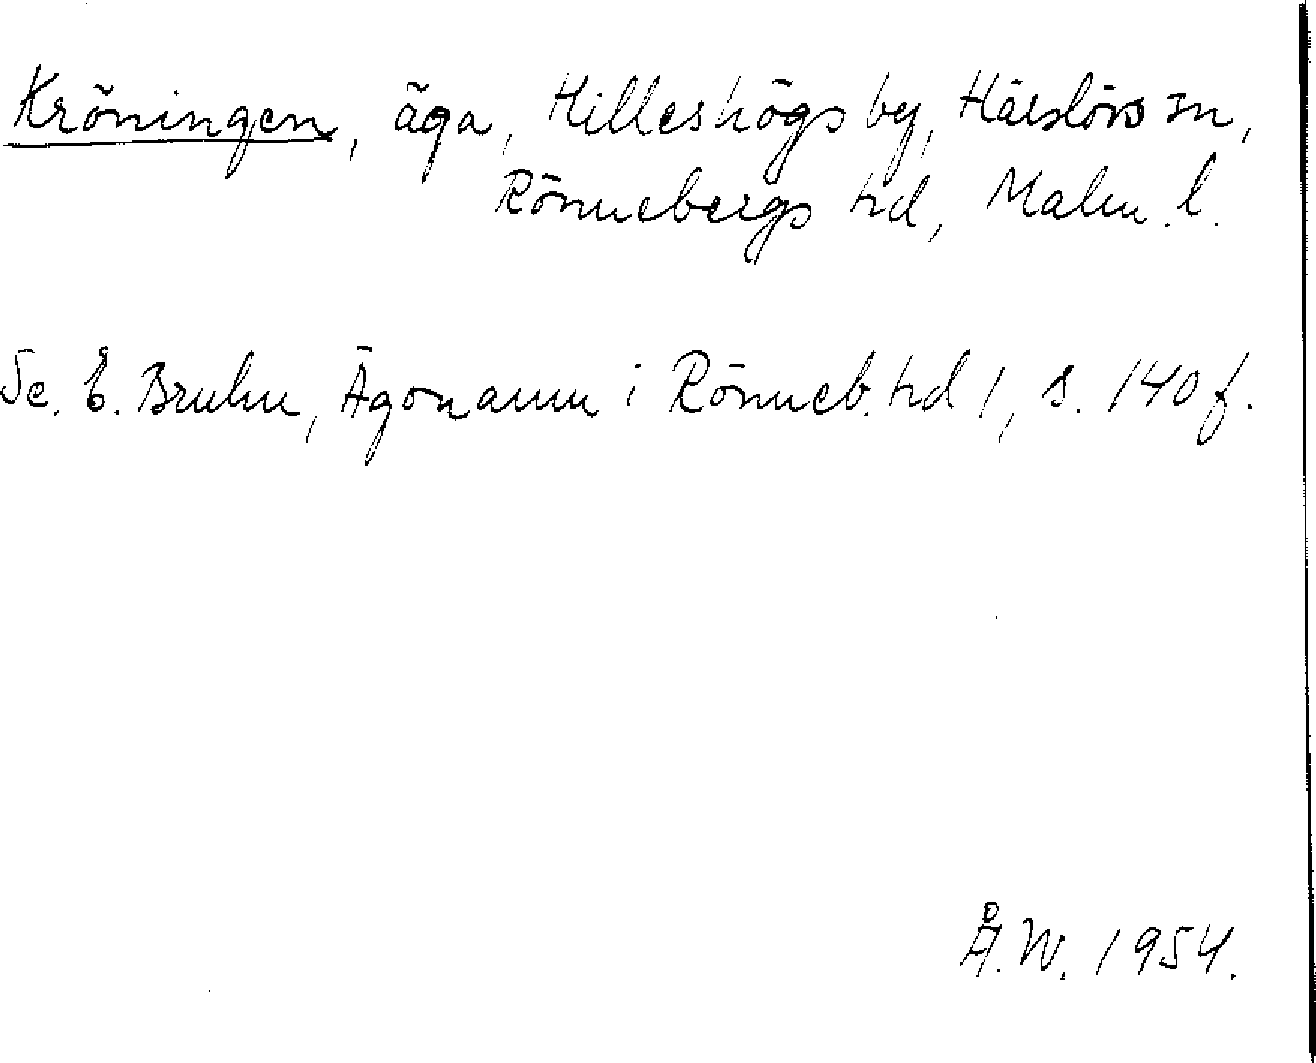 Kröningen, äga, Hilleshögs by, Härslövs sn,
Rönnebergs hd, Malm. l.
Se. E. Bruhn, Ägonamn i Rönneb. hd 1, s. 140 f.
Å. W. 1954.